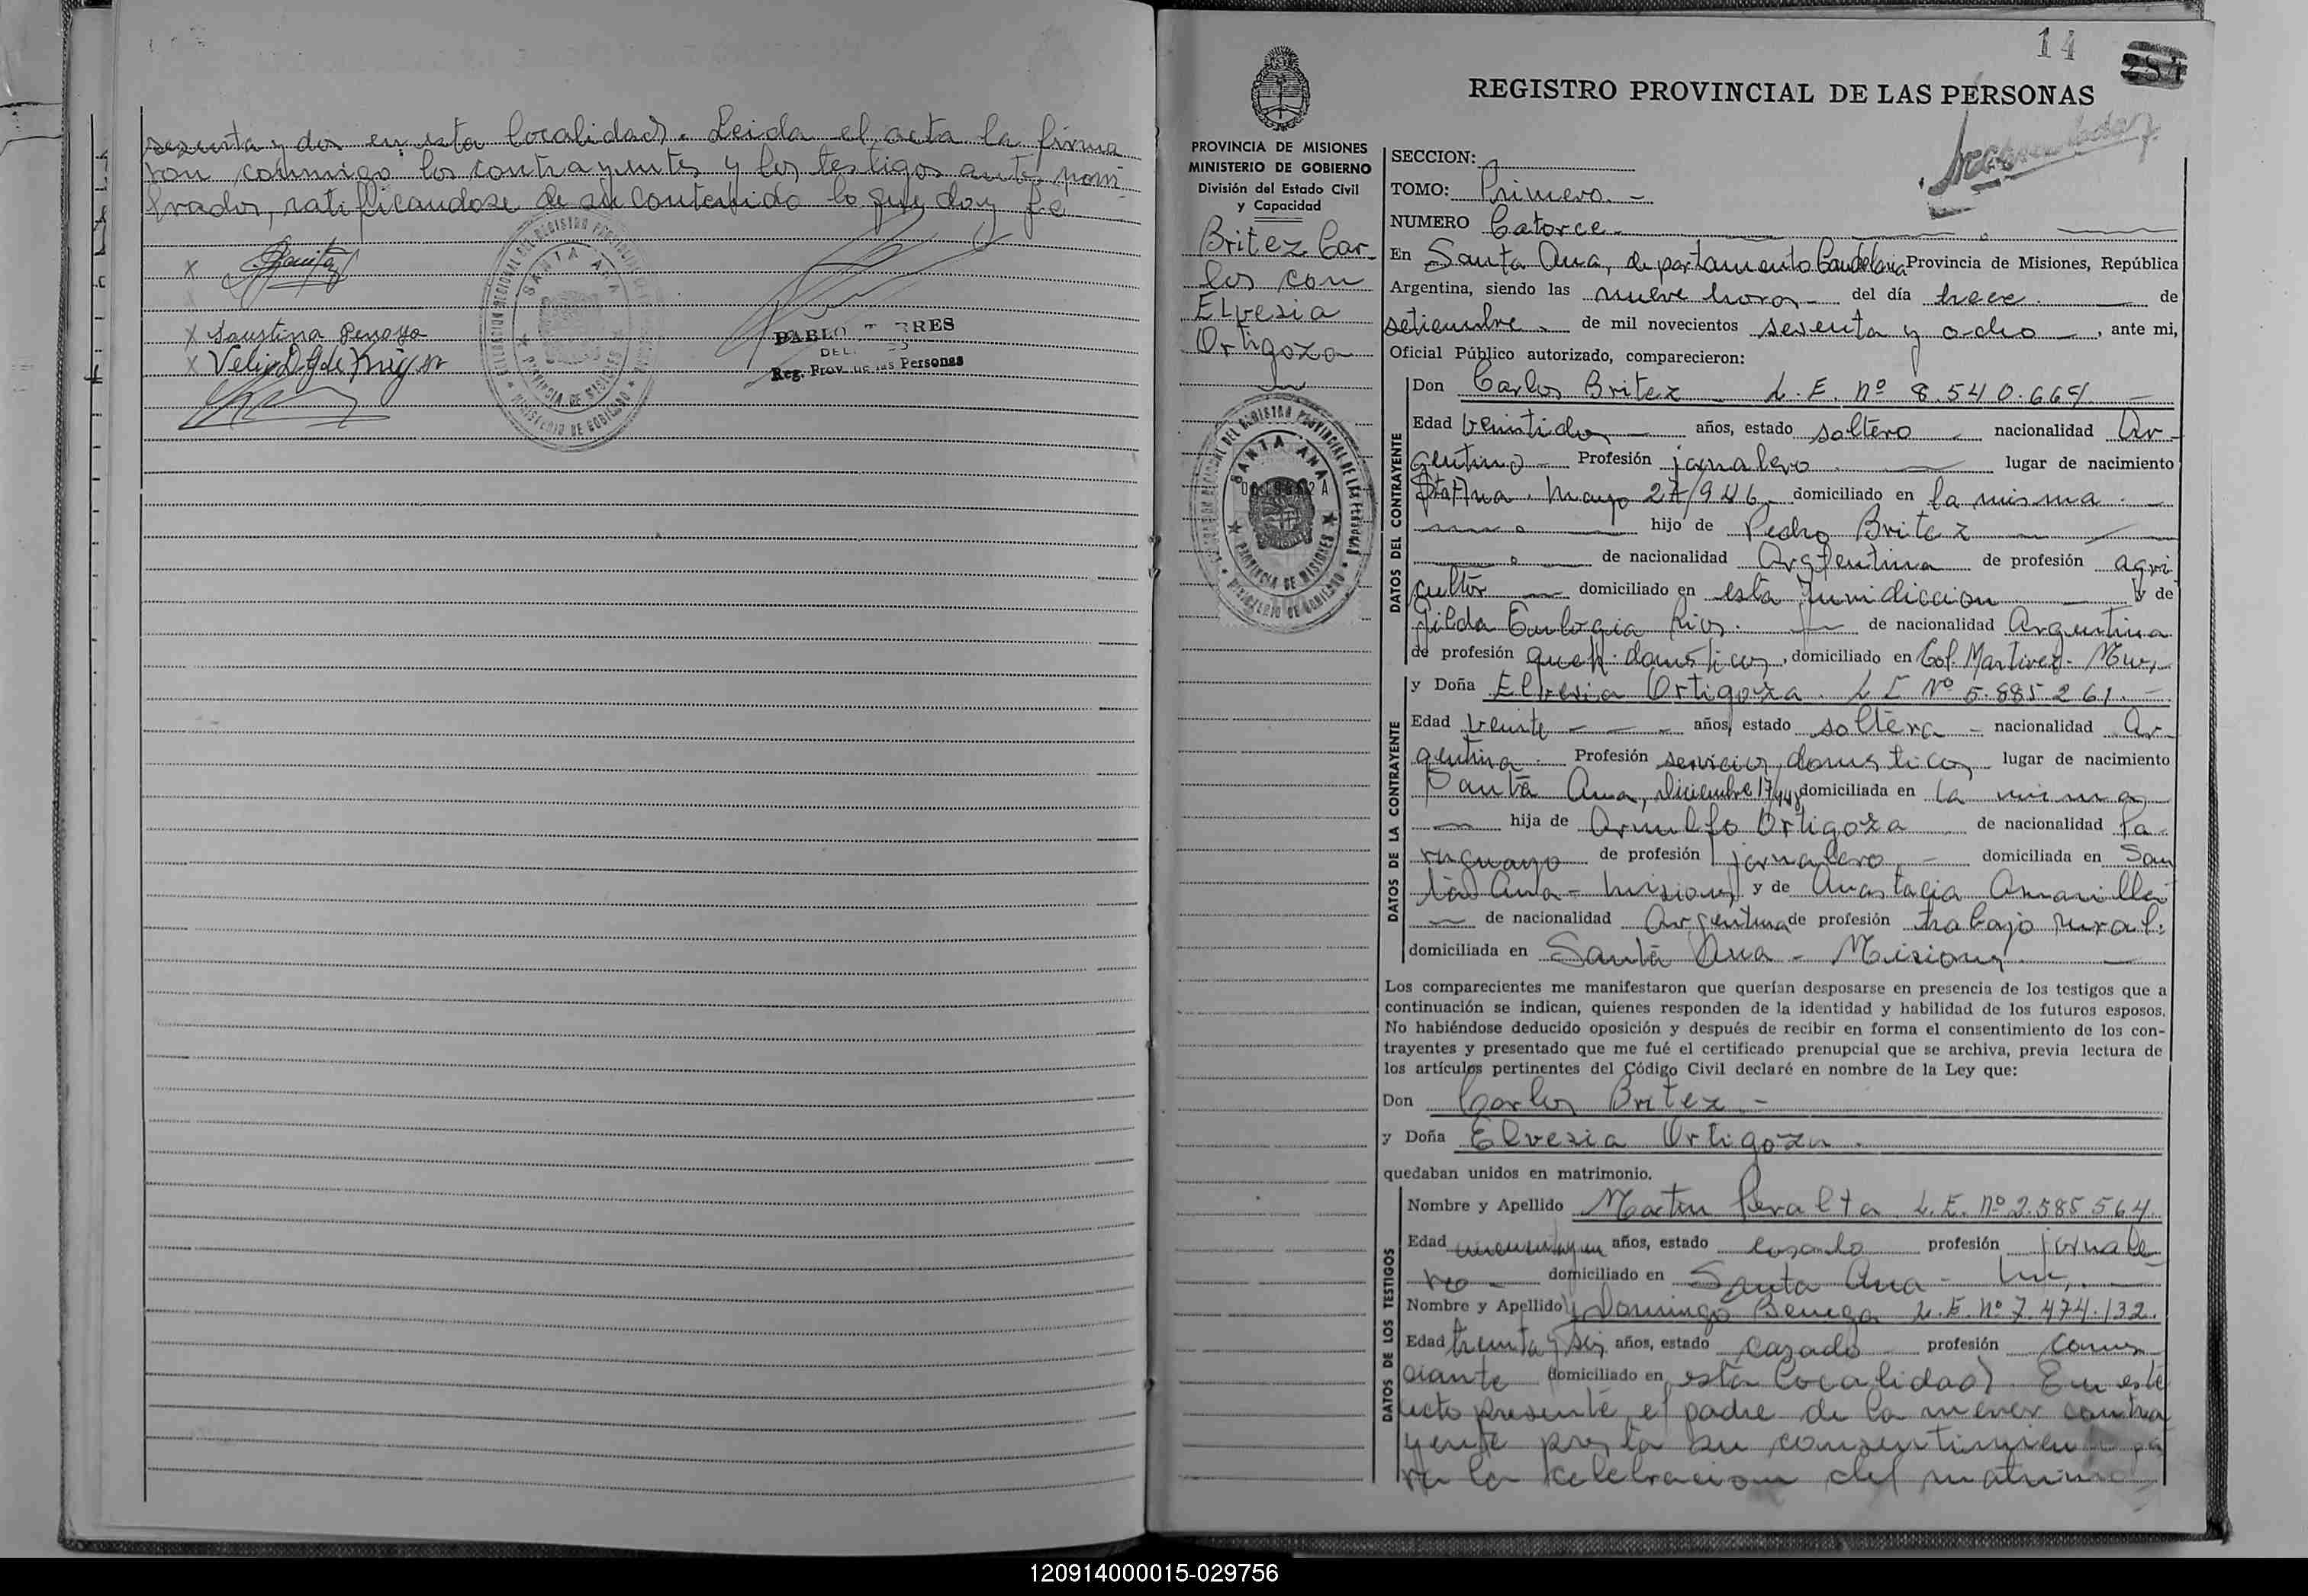 sesenta y dos en esta localidad. Leida el acta la firma
ron conmigo los contrayentes y los testigos antes nom
brados, ratificandose de su contenido lo que doy fe
Faustina Penayo
PABLO TORRES
DEL
Reg. Prov. de las Personas
SANTA ANA
PROVINCIA DE MISIONES
MINISTERIO DE GOBIERNO
14
REGISTRO PROVINCIAL DE LAS PERSONAS
PROVINCIA DE MISIONES
MINISTERIO DE GOBIERNO
División del Estado Civil
y Capacidad
Britez Car-
los con
Elvesia
Ortigoza
SANTA ANA
PROVINCIA DE MISIONES
MINISTERIO DE GOBIERNO
SECCION:
TOMO: Primero. -
NUMERO Catorce.
En Santa Ana, departamento Candelaria Provincia de Misiones, República
Argentina, siendo las nueve horas - del día trece - de
setiembre - de mil novecientos sesenta y ocho -, ante mi,
Oficial Público autorizado, comparecieron:
DATOS DEL CONTRAYENTE
Don Carlos Britez - L.E. nº 8.540.669 -
Edad veintidos - años, estado soltero - nacionalidad Ar-
gentino - Profesión jornalero - lugar de nacimiento
Sta Ana. Mayo 24/946 - domiciliado en la misma. -
hijo de Pedro Britez
de nacionalidad Argentina de profesión agri
cultor - domiciliado en esta Juridiccion - y de
Gilda Eulogia Rios. - de nacionalidad Argentina
de profesión queh. domesticos, domiciliado en Col. Martires - Mnes,
DATOS DE LA CONTRAYENTE
y Doña Elvesia Ortigoza. L E Nº 5.885.261. -
Edad veinte - - - años, estado soltera - nacionalidad Ar-
gentina - Profesión servicios domesticos lugar de nacimiento
Santa Ana, diciembre 17/948 domiciliada en la misma
- hija de Arnulfo Ortigoza de nacionalidad Pa-
raguayo de profesión jornalero - domiciliada en San
ta Ana - Misiones y de Anastacia Amarilla
- de nacionalidad Argentina de profesión trabajo rural.
domiciliada en Santa Ana - Misiones -
Los comparecientes me manifestaron que querían desposarse en presencia de los testigos que a
continuación se indican, quienes responden de la identidad y habilidad de los futuros esposos.
No habiéndose deducido oposición y después de recibir en forma el consentimiento de los con-
trayentes y presentado que me fué el certificado prenupcial que se archiva, previa lectura de
los artículos pertinentes del Código Civil declaré en nombre de la Ley que:
Don Carlos Britez -
y Doña Elvesia Ortigoza.
quedaban unidos en matrimonio.
DATOS DE LOS TESTIGOS
Nombre y Apellido Martin Peralta L.E. nº 2.585.564
Edad cincuentayun años, estado casado profesión jornale
ro - domiciliado en Santa Ana -
Nombre y Apellido y Domingo Benega L.E. nº 7.474.132.
Edad treinta y seis años, estado casado profesión comer
ciante domiciliado en esta localidad. En este
acto presente el padre de la menor contra
yente presta su consentimiento pa
ra la celebracion del matrimo
120914000015-029756